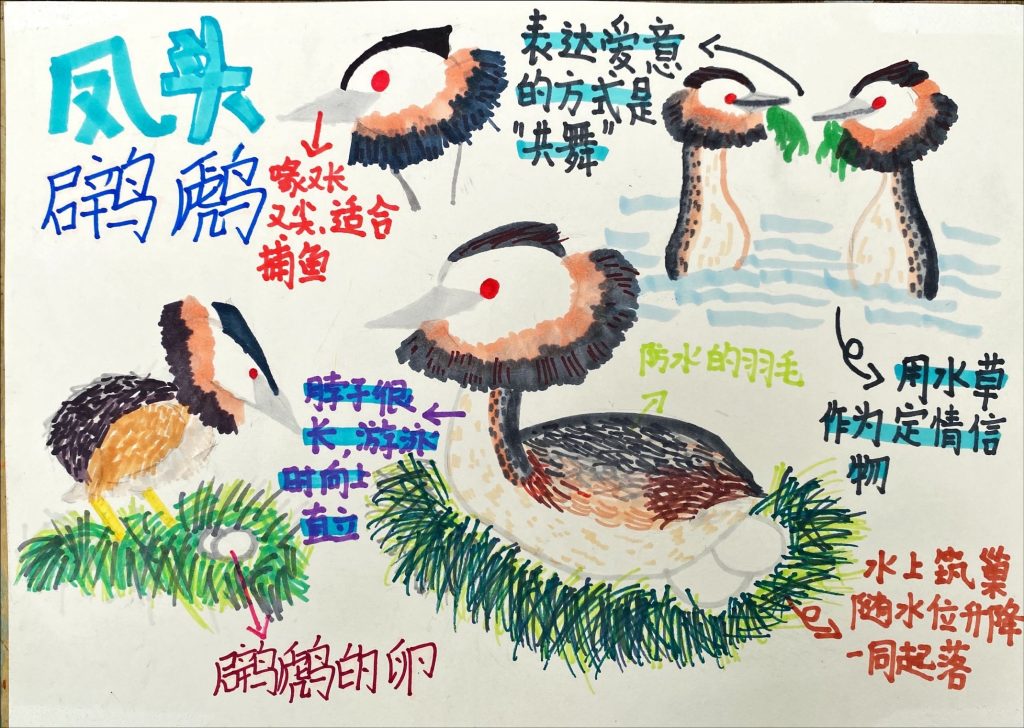 凤头
䴙䴘
喙又长
又尖、适合
捕鱼
表达爱意
的方式是
“共舞”
用水草
作为定情信
物
防水的羽毛
脖子很
长，游泳
时向上
直立
水上筑巢
随水位升降
一同起落
䴙䴘的卵